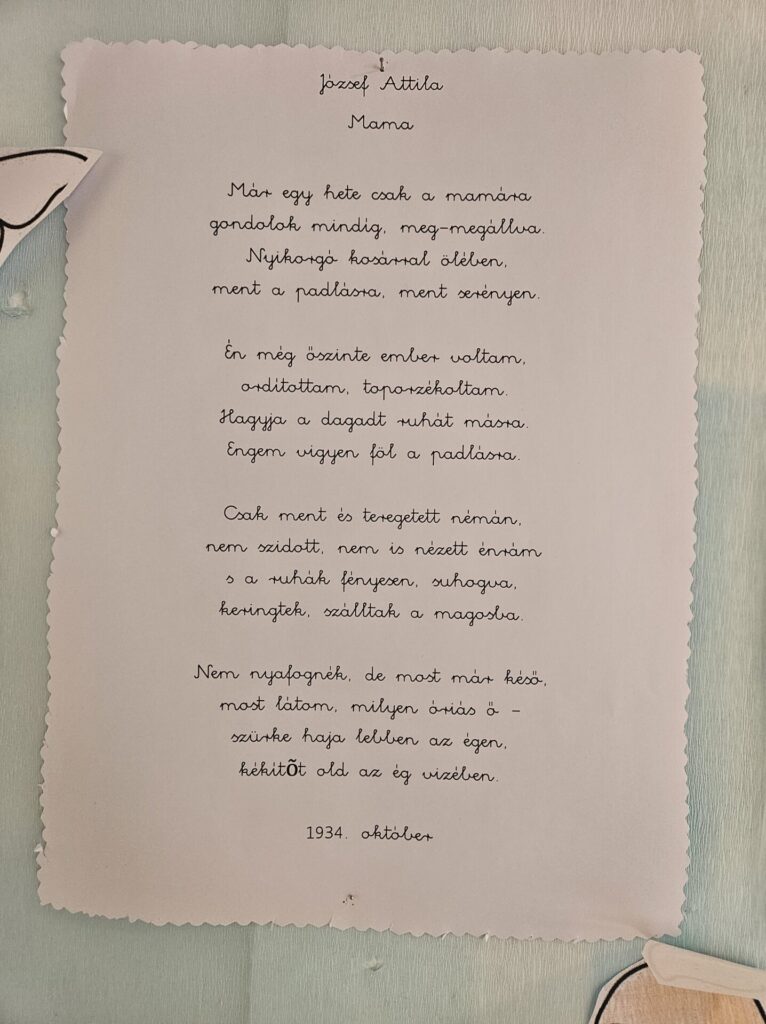 József Attila
Mama
Már egy hete csak a mamára
gondolok mindíg, meg-megállva.
Nyikorgó kosárral ölében,
ment a padlásra, ment serényen.
Én még őszinte ember voltam,
ordítottam, toporzékoltam.
Hagyja a dagadt ruhát másra.
Engem vigyen föl a padlásra.
Csak ment és teregetett némán,
nem szidott, nem is nézett énrám
s a ruhák fényesen, suhogva,
keringtek, szálltak a magosba.
Nem nyafognék, de most már késő,
most látom, milyen óriás ő -
szürke haja lebben az égen,
kékítõt old az ég vizében.
1934. október